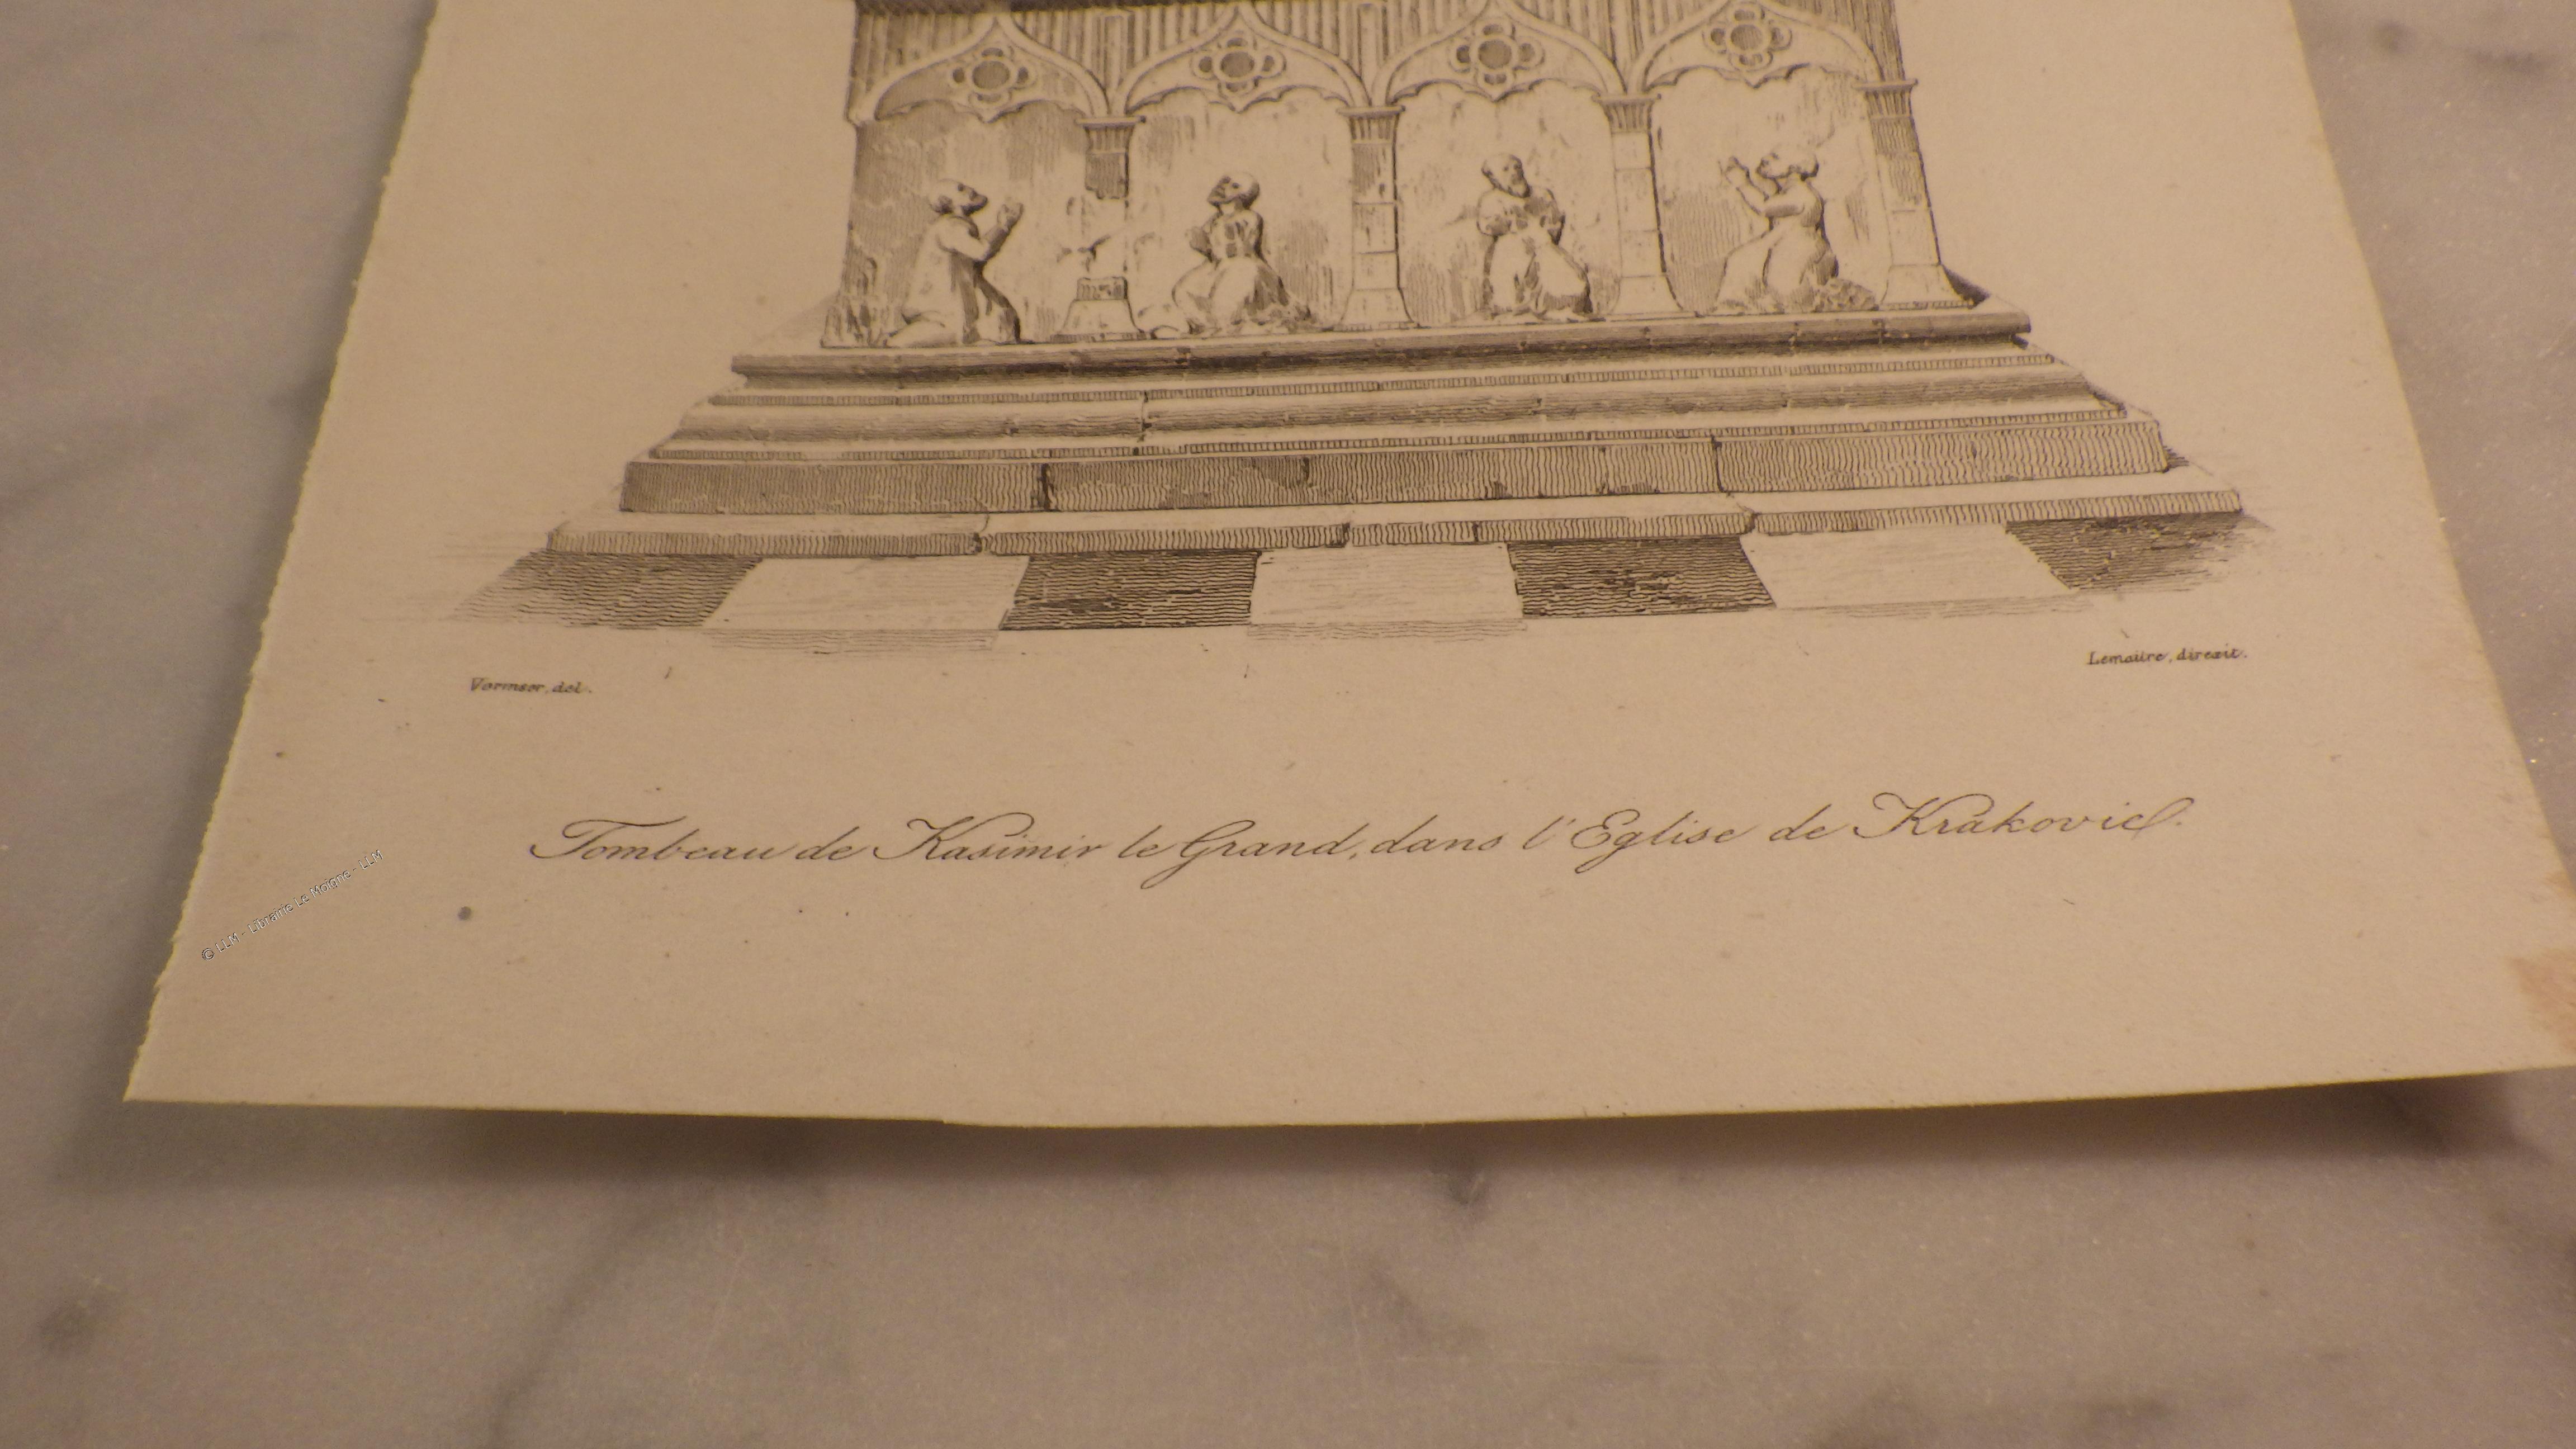 Vormser, del.
Lemaitre, direxit.
Tombeau de Kasimir le Grand, dans l'Eglise de Krakovie.
© LLM - Librairie Le Moigne - LLM